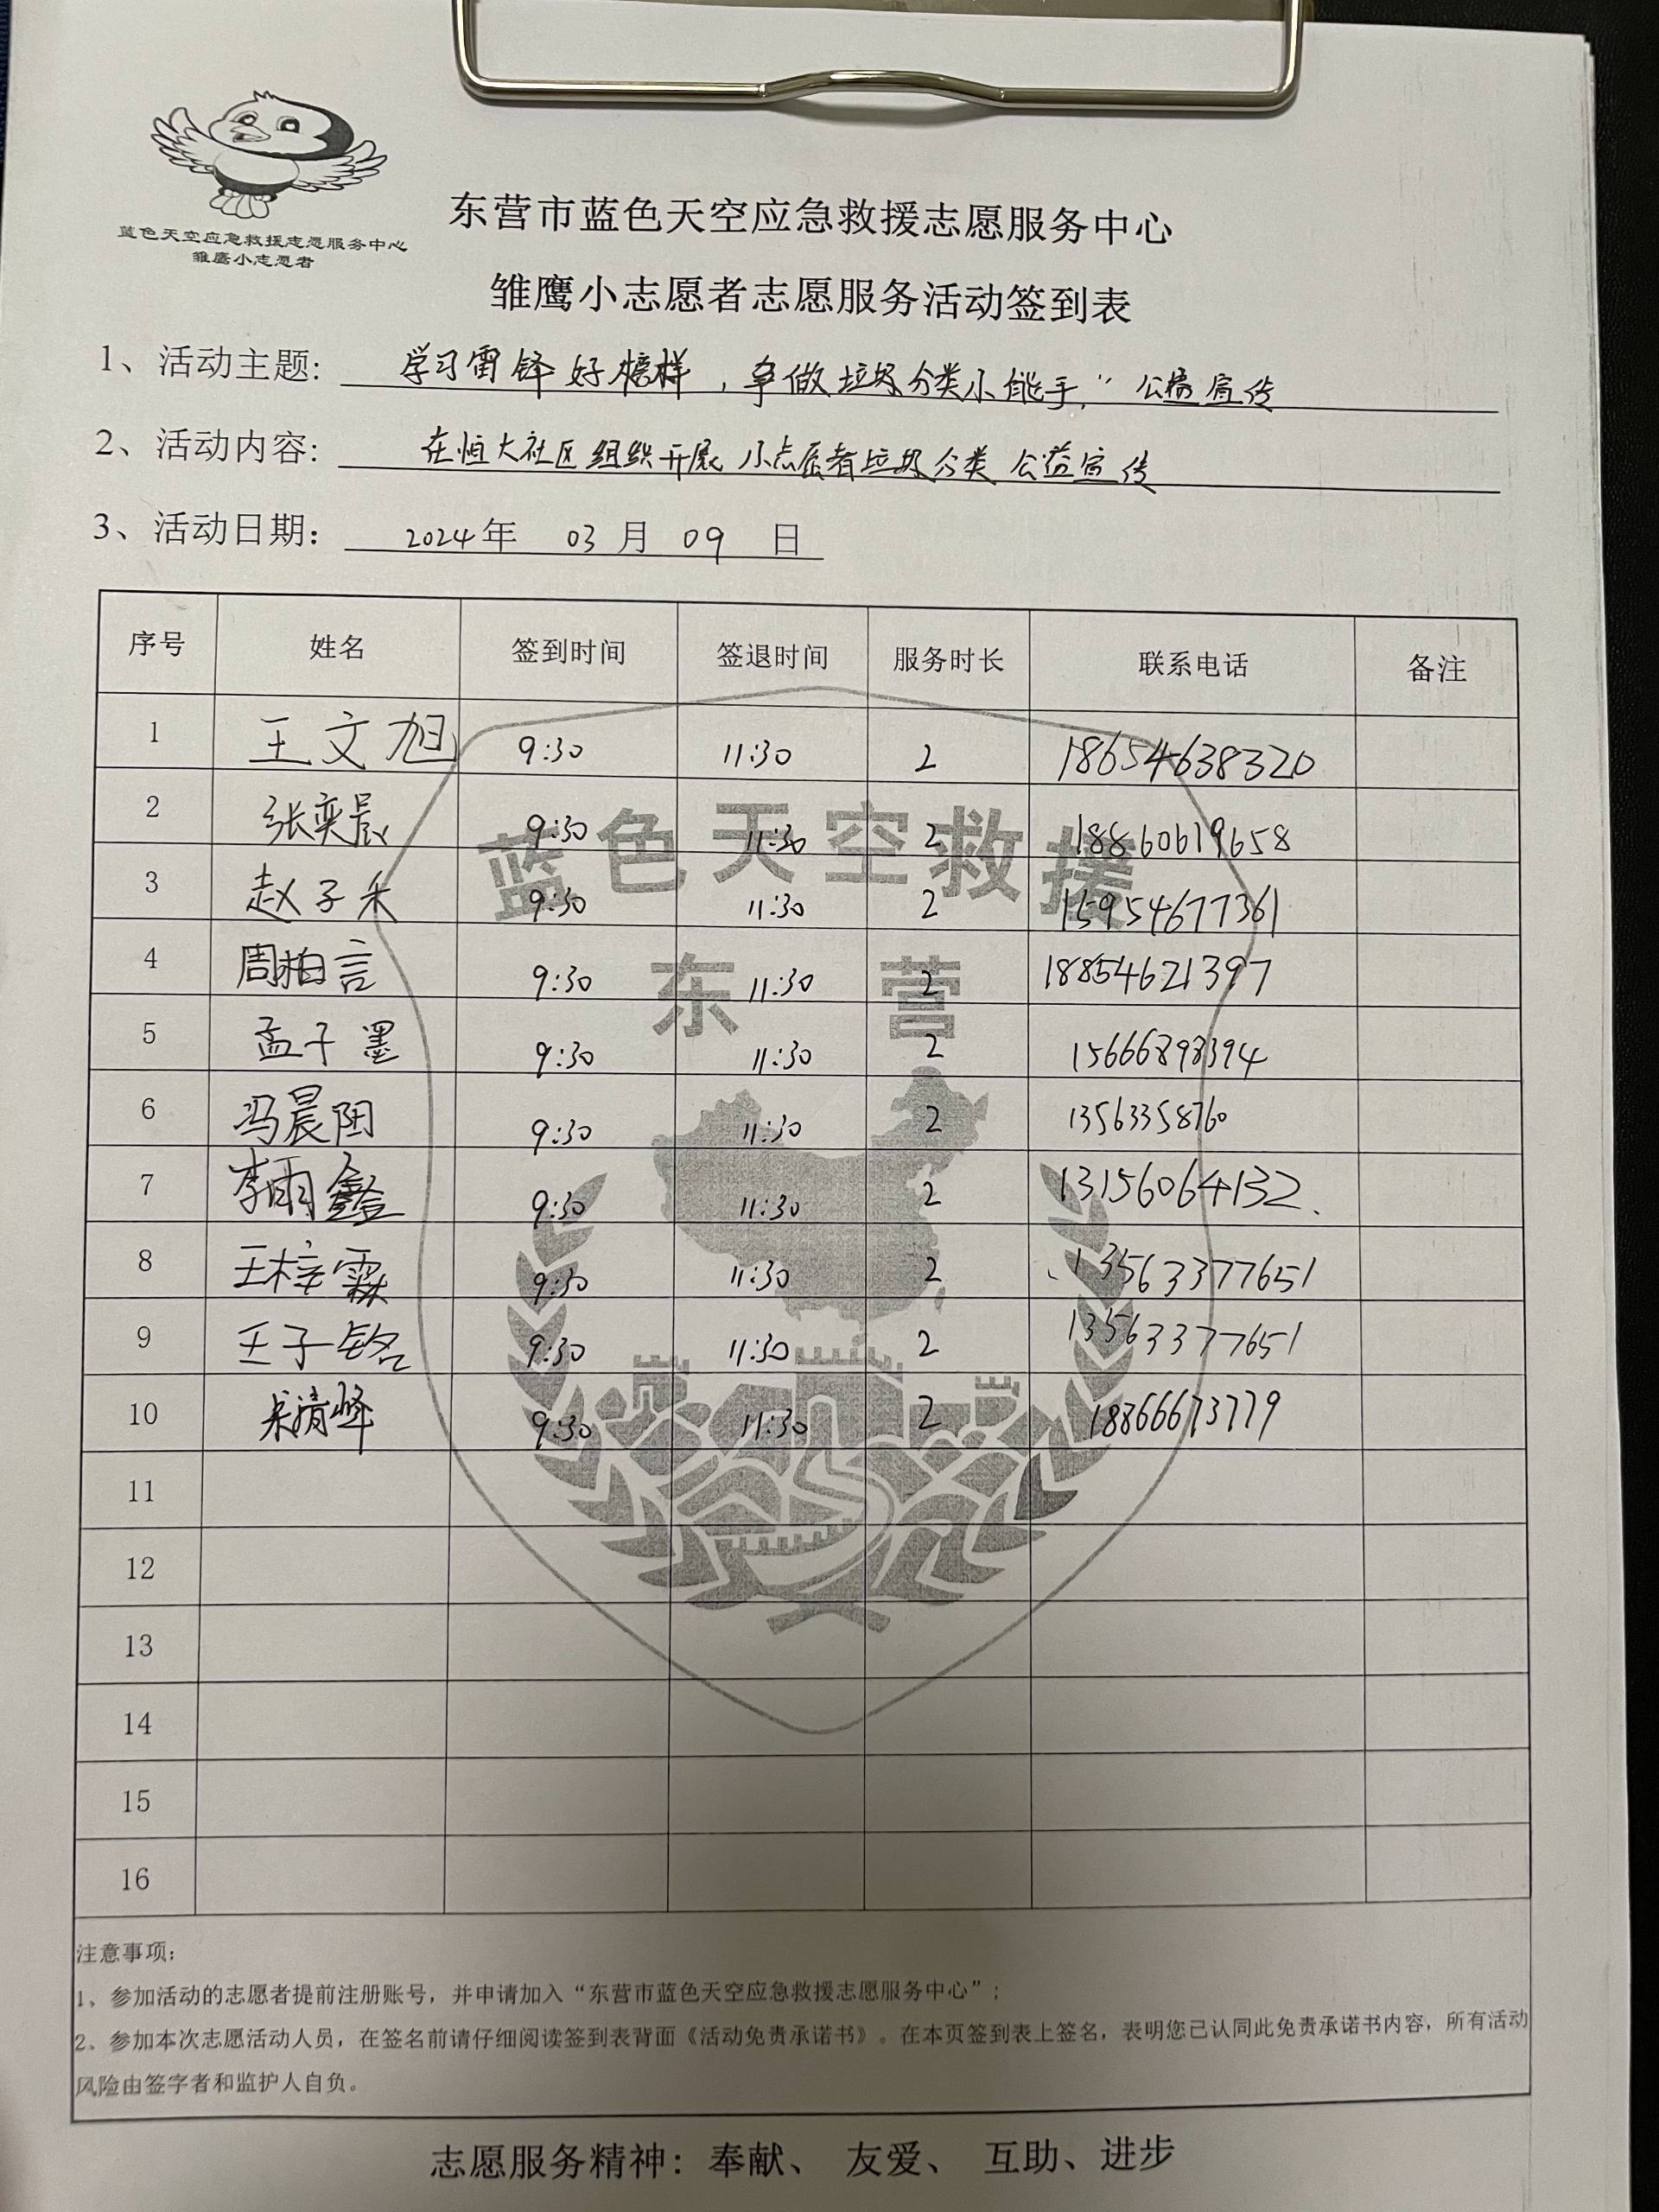 蓝色天空应急救援志愿服务中心
雏鹰小志愿者
东营市蓝色天空应急救援志愿服务中心
雏鹰小志愿者志愿服务活动签到表
1、活动主题: 学习雷锋好榜样，争做垃圾分类小能手,"公益宣传
2、活动内容: 在恒大社区组织开展小志愿者垃圾分类公益宣传
3、活动日期: 2024年 03月 09 日
序号 姓名 签到时间 签退时间 服务时长 联系电话 备注
1 王文旭 9:30 11:30 2 18654638320
2 张奕晨 9:30 11:30 2 18860619658
3 赵子禾 9:30 11:30 2 15954677361
4 周柏言 9:30 11:30 2 18854621397
5 孟子墨 9:30 11:30 2 15666898394
6 冯晨阳 9:30 11:30 2 13563358760
7 李雨鑫 9:30 11:30 2 13156064132
8 王梓霖 9:30 11:30 2 13563377651
9 王子铭 9:30 11:30 2 13563377651
10 清峰 9:30 11:30 2
11
12
13
14
15
16
蓝色天空救援
东营
注意事项:
1、参加活动的志愿者提前注册账号，并申请加入“东营市蓝色天空应急救援志愿服务中心”;
2、参加本次志愿活动人员，在签名前请仔细阅读签到表背面《活动免责承诺书》。在本页签到表上签名，表明您已认同此免责承诺书内容，所有活动
风险由签字者和监护人自负。
志愿服务精神: 奉献、 友爱、 互助、进步